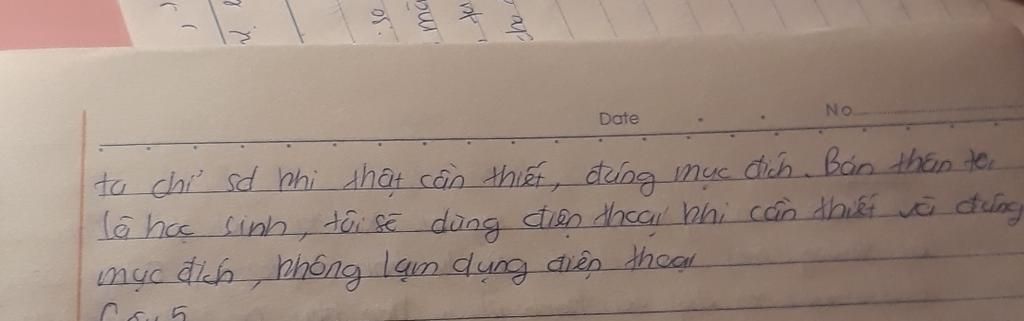 Date No
ta chỉ sd khi thật cần thiết, đúng mục đích. Bản thân tôi
là học sinh, tôi sẽ dùng điện thoại khi cần thiết và đúng
mục đích, không lạm dụng điện thoại
Câu 5